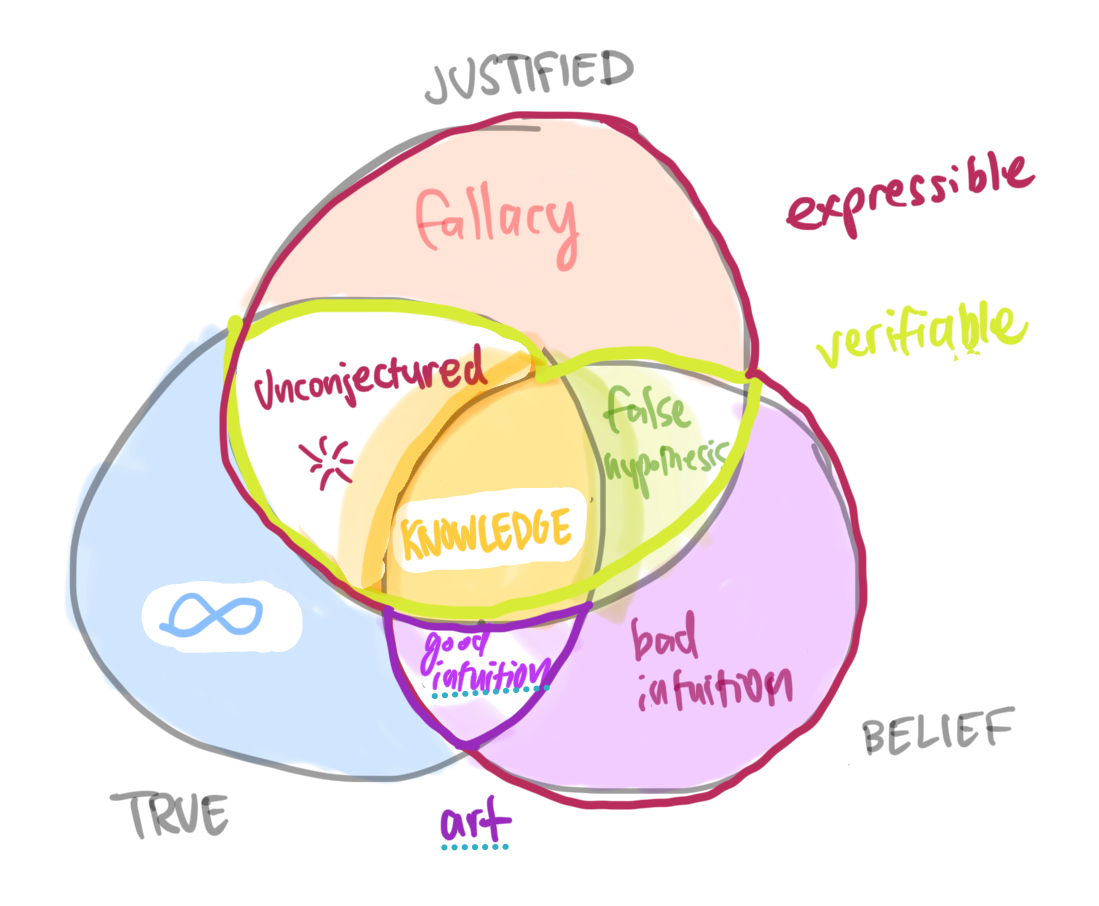 JUSTIFIED
fallacy
expressible
verifiable
Unconjectured
false
hypothesis
KNOWLEDGE
∞
good
intuition
bad
intuition
BELIEF
TRUE
art